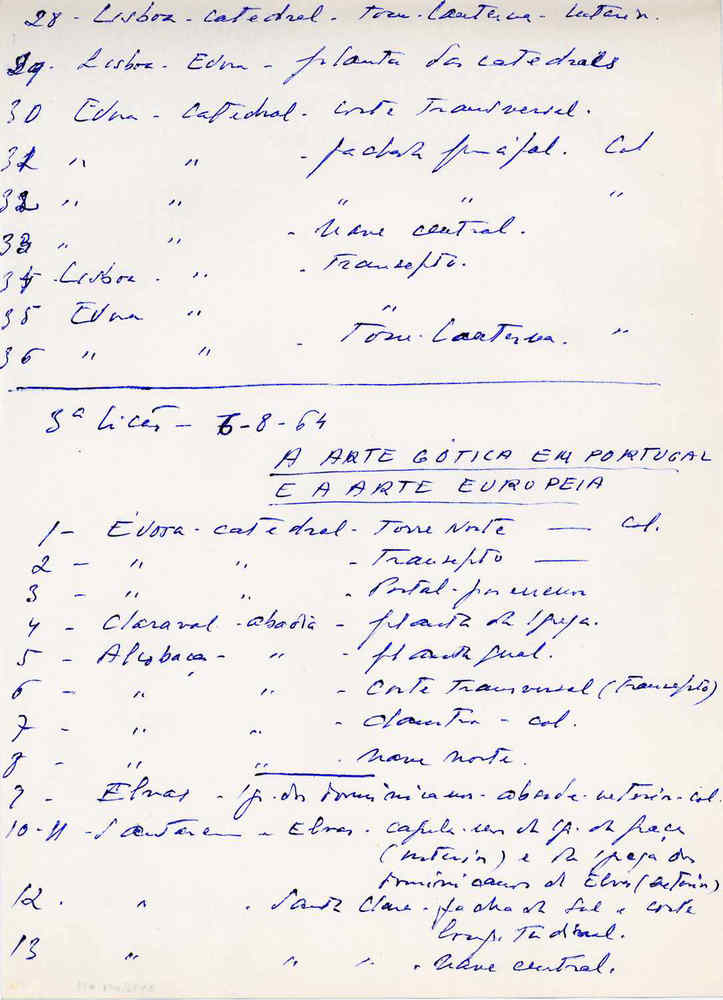 28 - Lisboa - catedral - Torre-Lanterna - interior.
29 - Lisboa - Évora - planta das catedrais
30 Évora - Catedral - corte transversal.
31 " " - fachada principal. Col
32 " " " " "
33 " " - Nave central.
34 - Lisboa - " - Transepto.
35 Évora " "
36 " " - Torre-Lanterna. "
3ª Lição - 6-8-64
A ARTE GÓTICA EM PORTUGAL
E A ARTE EUROPEIA
1 - Évora - catedral - Torre Norte — Col.
2 - " " - Transepto —
3 - " " - Portal - pormenor
4 - Claraval - abadia - planta da Igreja.
5 - Alcobaça - " - planta geral.
6 - " " - Corte Transversal (Transepto)
7 - " " - Claustro - col.
8 - " " - Nave Norte.
9 - Elvas - Ig. dos Dominicanos - abside - exterior - col.
10-11 - Santarem - Elvas - capela-mor da Ig. da Graça
(interior) e da Igreja dos
Dominicanos de Elvas (exterior)
12 - " - Santa Clara - fachada Sul e corte
longitudinal.
13 " " " - Nave central.